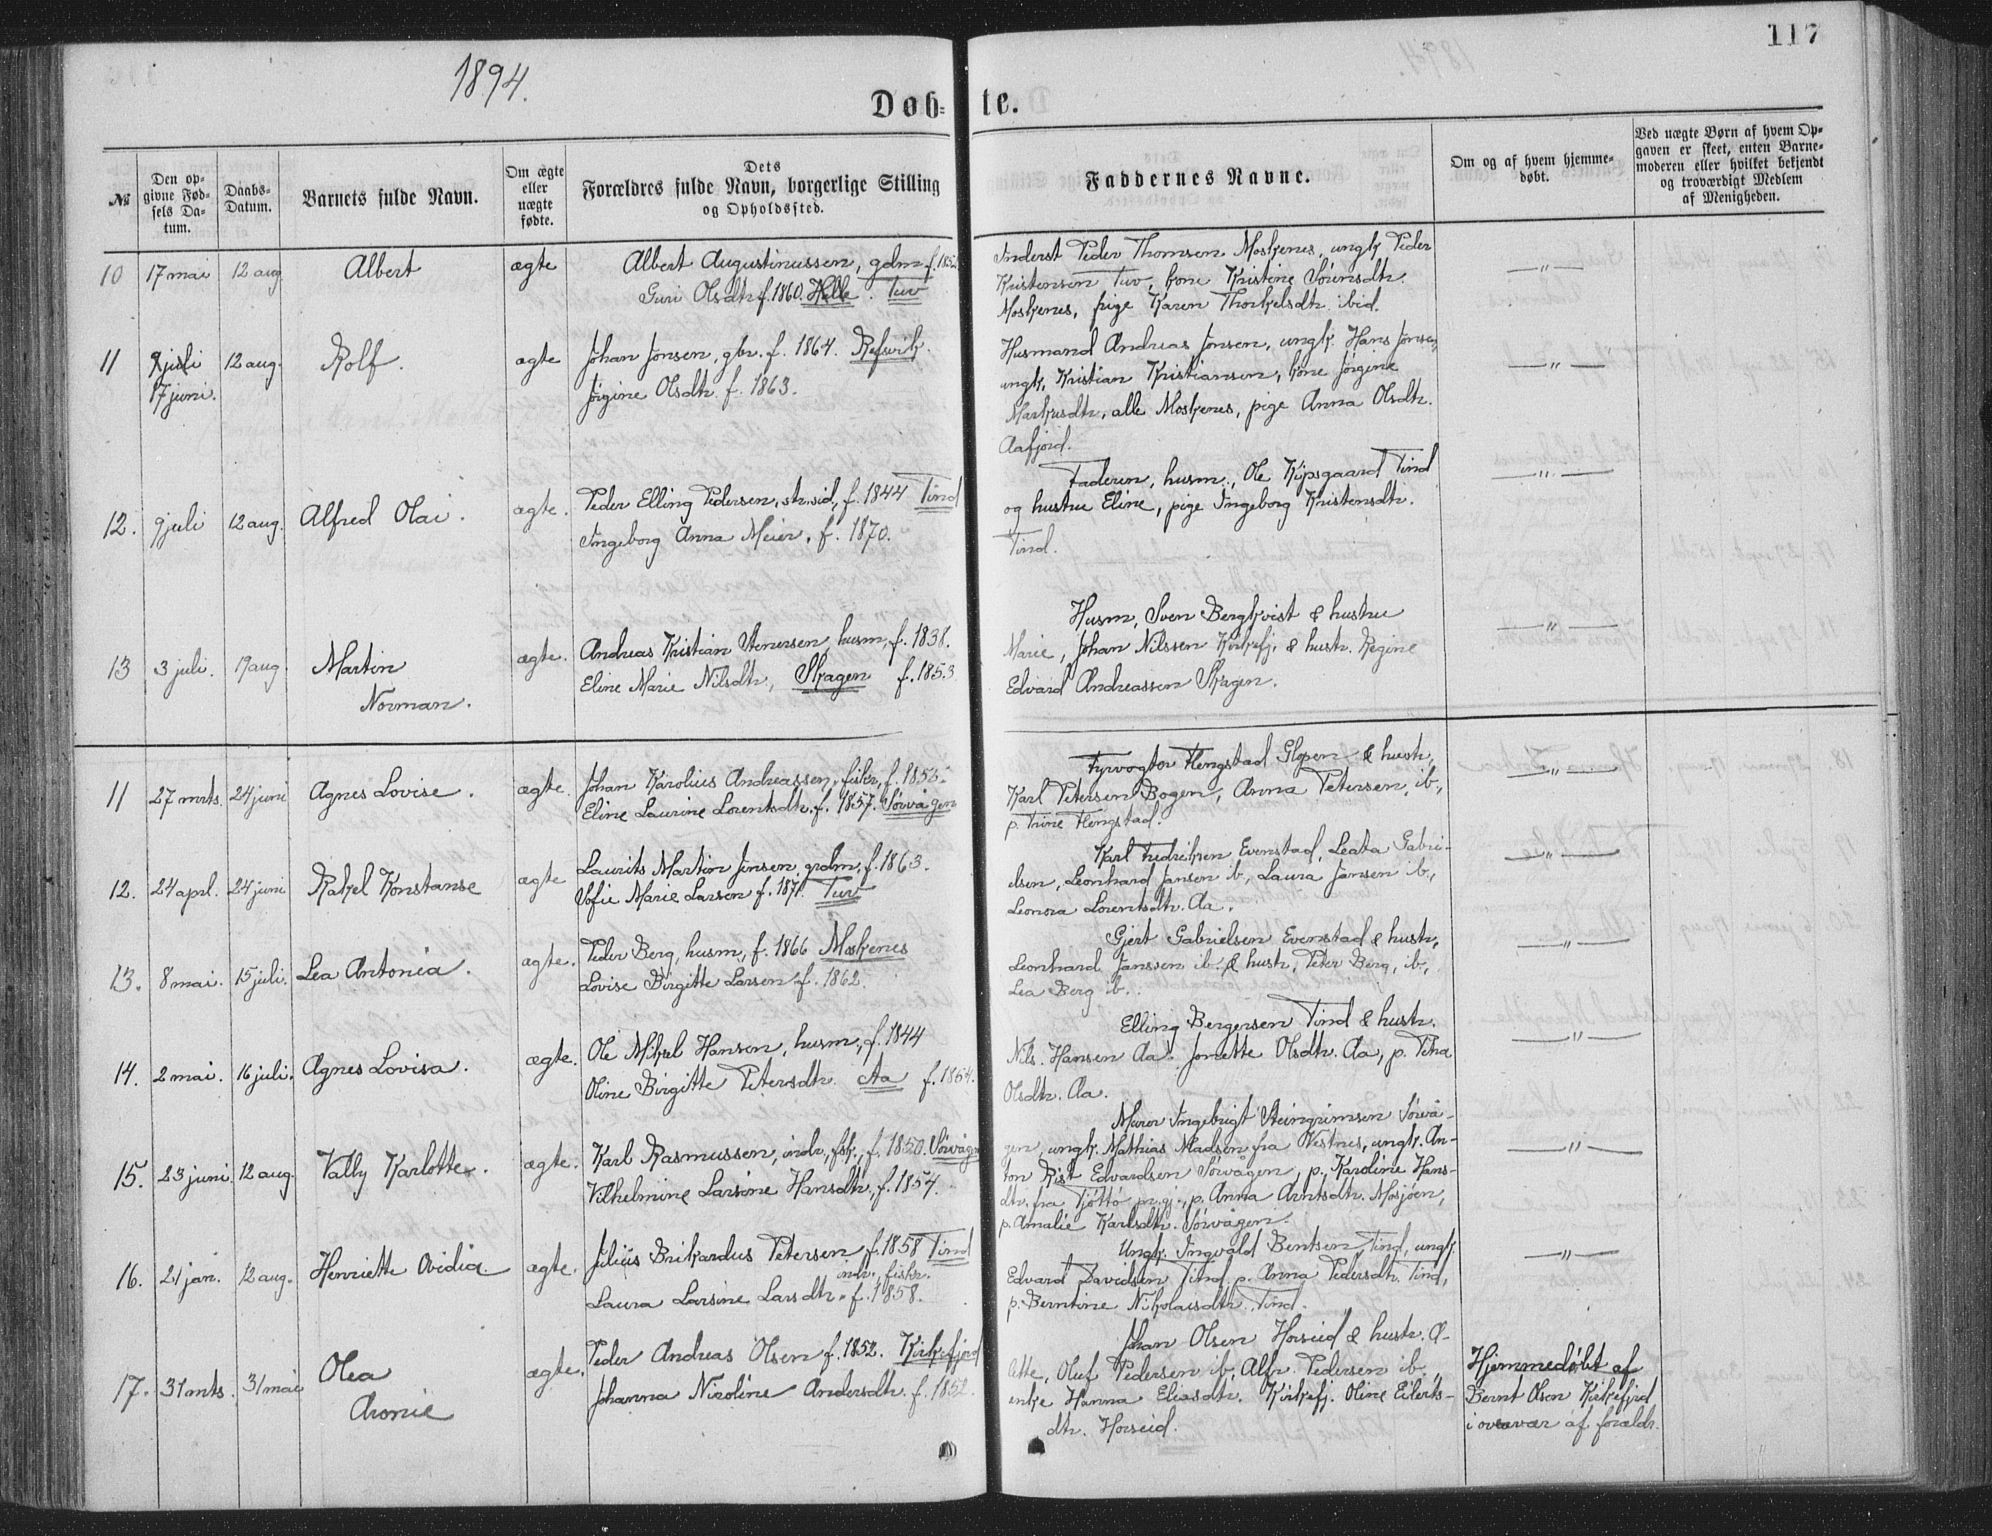 1894.
117
Døb-
te.
№
Den op-
givne Fød-
sels Da-
tum.
Daabs-
Datum.
Barnets fulde Navn.
Om ægte
eller
uægte
fødte.
Dets
Forældres fulde Navn, borgerlige Stilling
og Opholdssted.
Faddernes Navne.
Om og af hvem hjemme-
døbt.
Ved uægte Børn af hvem Op-
gaven er skeet, enten Barne-
moderen eller hvilket bekjendt
og troværdigt Medlem
af Menigheden.
10 17 mai 12 aug. Albert ægte
Albert Augustinussen, gdm. f. 185
Guri Olsdtr. f. 1860. Helle. Tuv
Inderst Peder Thomsen Moskenes, ungk. Peder
Kristensen Tuv, kone Kristine Sørensdtr.
Moskenes, pige Karen Thorkelsdtr. ibid.
—"—
11 9 juli 12 aug. Rolf. ægte
17 juni.
Johan Jonsen, gbr. f. 1864. Refsvik.
Jørgine Olsdtr. f. 1863.
Husmand Andreas Jonsen, ungk. Hans Jonsen,
ungk. Kristian Kristiansen, kone Jørgine
Markusdtr, alle Moskenes, pige Anna Olsdtr.
Aafjord.
—"—
12. 9 juli 12 aug. Alfred Olai. ægte.
Peder Elling Pedersen, str.sid, f. 1844 Tind
Ingeborg Anna Meier, f. 1870.
Faderen, husm., Ole Kipsgaard Tind
og hustru Eline, pige Ingeborg Kristensdtr.
Tind.
—"—
13 3 juli. 19 aug. Martin ægte.
Norman.
Andreas Kristian Stenersen, husm, f. 1838.
Eline Marie Nilsdtr, Skagen f. 1853
Husm, Sven Bergkvist & hustru
Marie, Johan Nilssen Kirkefj. & hustr. Regine
Edvard Andreassen Skagen.
—"—
11 27 mrts. 24 juni Agnes Lovise. ægte.
Johan Karolius Andreassen, fiskr, f. 1853.
Eline Laurine Lorentsdtr. f. 1857. Sørvågen
Fyrvogter Hengstad Glopen & hustr,
Karl Petersen Bogen, Anna Petersen, ib,
p. Trine Hengstad.
—"—
12. 24 aprl. 24 juni Rakel Konstanse ægte
Laurits Martin Jensen, grdm, f. 1863.
Sofie Marie Larsen f. 1871. Tuv
Karl Fredriksen Evenstad, Leata Gabri-
elsen, Leonhard Jansen ib, Laura Jansen ib,
Leonora Lorentsdtr. Aa.
—"—
13. 8 mai. 15 juli. Lea Antonia. ægte.
Peder Berg, husm, f. 1866 Moskenes
Lovise Birgitte Larsen f. 1862.
Gjert Gabrielsen Evenstad & hustr,
Leonhard Janssen ib. & hustr, Peter Berg, ib,
Lea Berg ib.
—"—
14. 2 mai. 16 juli. Agnes Lovisa. ægte.
Ole Mikal Hansen, husm, f. 1844
Oline Birgitte Petersdtr. Aa f. 1854.
Elling Bergersen Tind & hustr.
Nils. Hansen Aa. Jonette Olsdtr. Aa, p. Petra
Olsdtr. Aa.
—"—
15. 23 juni. 12 aug. Vally Karlotte. ægte.
Karl Rasmussen, indr, fsk., f. 1850. Sørvågen
Vilhelmine Larsine Hansdtr, f. 1854.
Murer Ingebrigt Steingrimsen Sørvå-
gen, ungk. Mathias Madsen fra Vestnes, ungk. An-
ton Krist Edvardsen Sørvågen, p. Karoline Hans-
dtr. fra Tjøttø pr.gj., p. Anna Arntsdtr. Mosjøen,
p. Amalie Karlsdtr. Sørvågen.
—"—
16. 21 jan. 12 aug. Henriette Ovidia ægte.
Julius Brikardus Petersen f. 1858 Tind
indr, fiskr.
Laura Larsine Larsdtr. f. 1858.
Ungk. Ingvald Bentsen Tind, ungk.
Edvard Davidsen Tind p. Anna Pedersdtr. Tind,
p. Berntine Nikolaisdtr. Tind.
—"—
17. 31 mts. 31 mai Olea ægte.
Aronie
Peder Andreas Olsen f. 1852. Kirkefjord
Johanna Nicoline Andersdtr. f. 1852.
Johan Olsen Horseid & hustr. O-
lette, Oluf Pedersen ib, Alfr. Pedersen ib.
enke Hanna Eliasdtr. Kirkefj. Oline Eilerts-
dtr. Horseid.
Hjemmedøbt af
Bernt Olsen Kirkefjrd
i overvær af forældr.